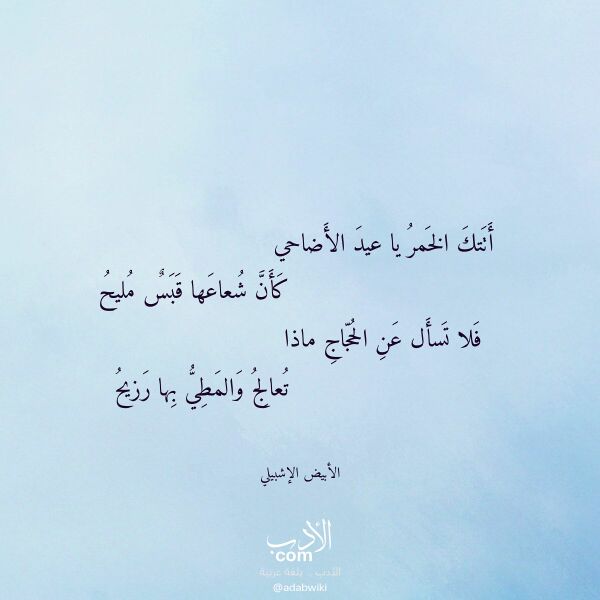 أَتَتكَ الخَمرُ يا عيدَ الأَضاحي
كَأَنَّ شُعاعَها قَبَسٌ مُليحُ
فَلا تَسأَل عَنِ الحُجّاجِ ماذا
تُعالِجُ وَالمَطِيُّ بِها رَزيحُ
الأبيض الإشبيلي
الأدب
com
الأدب .. بلغة عربية
@adabwiki